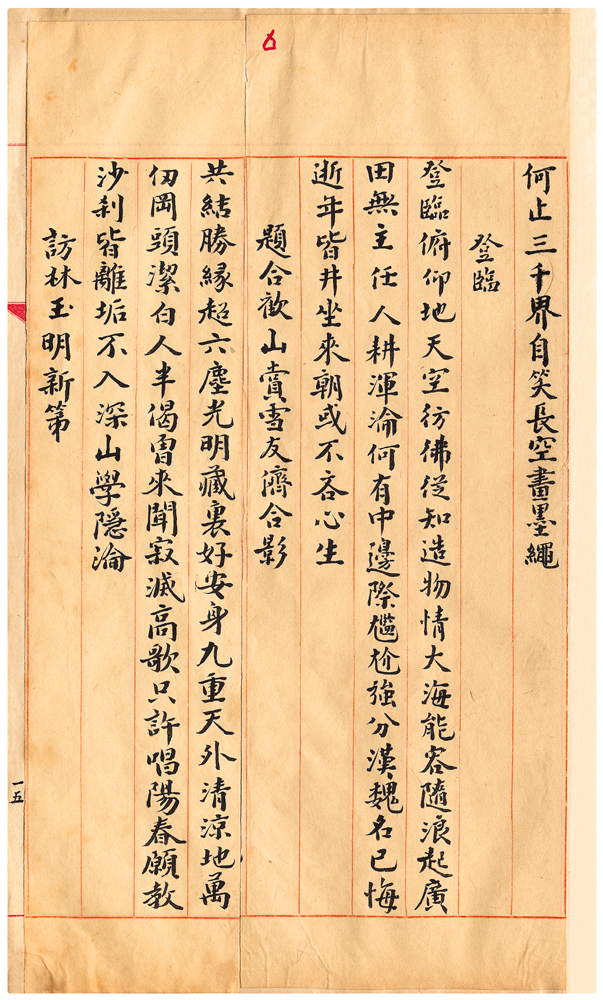 何止三千界自笑長空畫墨繩
登臨
登臨俯仰地天空彷彿從知造物情大海能容隨浪起廣
田無主任人耕渾淪何有中邊際尷尬強分漢魏名已悔
逝年皆井坐來朝或不吝心生
題合歡山賞雪友儕合影
共結勝緣超六塵光明藏裏好安身九重天外清涼地萬
仞岡頭潔白人半偈曾來聞寂滅高歌只許唱陽春願教
沙剎皆離垢不入深山學隱淪
訪林玉明新第
一五